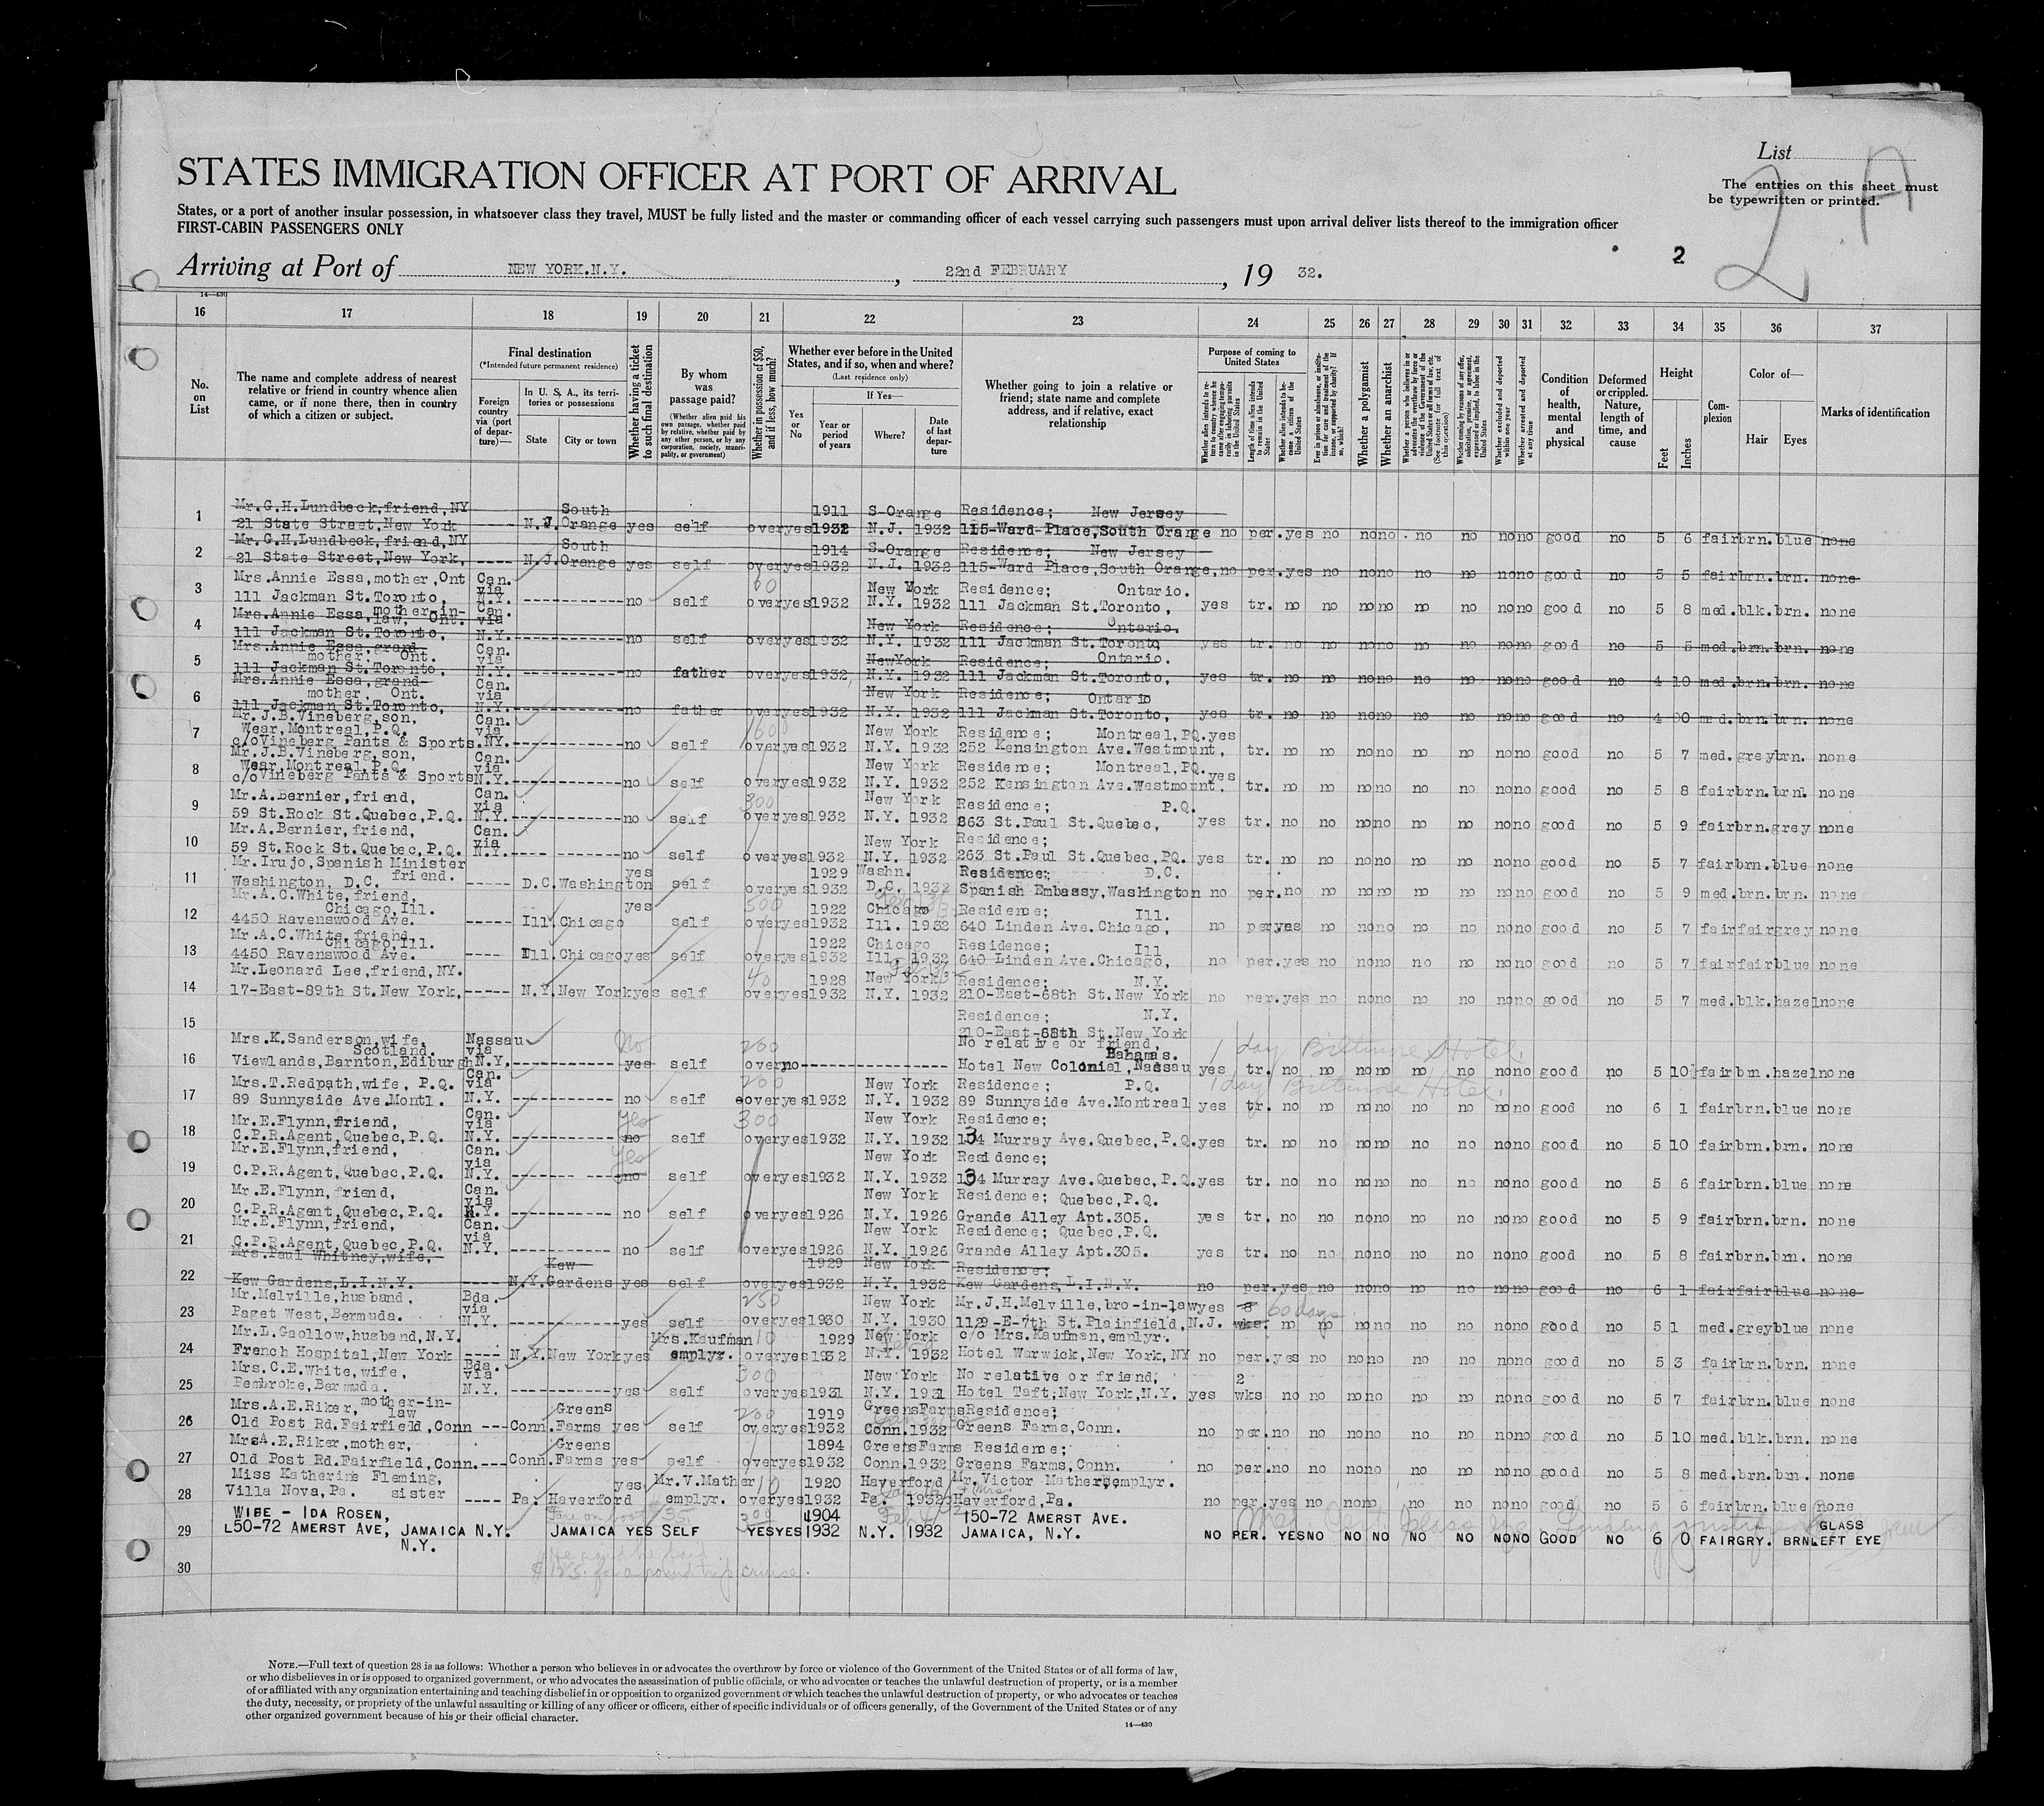 List
2 A
The entries on this sheet must
be typewritten or printed.
STATES IMMIGRATION OFFICER AT PORT OF ARRIVAL
States, or a port of another insular possession, in whatsoever class they travel, MUST be fully listed and the master or commanding officer of each vessel carrying such passengers must upon arrival deliver lists thereof to the immigration officer
FIRST-CABIN PASSENGERS ONLY
2
Arriving at Port of NEW YORK.N.Y. , 22nd FEBRUARY , 19 32.
14—430
16 17 18 19 20 21 22 23 24 25 26 27 28 29 30 31 32 33 34 35 36 37
No. on List
The name and complete address of nearest relative or friend in country whence alien came, or if none there, then in country of which a citizen or subject.
Final destination
(*Intended future permanent residence)
Foreign country via (port of departure)—
In U. S. A., its territories or possessions
State
City or town
Whether having a ticket to such final destination
By whom was passage paid?
(Whether alien paid his own passage, whether paid by relative, whether paid by any other person, or by any corporation, society, municipality, or government)
Whether in possession of $50, and if less, how much?
Whether ever before in the United States, and if so, when and where?
(Last residence only)
Yes or No
If Yes—
Year or period of years
Where?
Date of last departure
Whether going to join a relative or friend; state name and complete address, and if relative, exact relationship
Purpose of coming to United States
Length of time alien intends to remain in the United States
Whether alien intends to become a citizen of the United States
Whether a polygamist
Whether an anarchist
Whether excluded and deported within one year
Whether arrested and deported at any time
Condition of health, mental and physical
Deformed or crippled. Nature, length of time, and cause
Height
Feet
Inches
Complexion
Color of—
Hair
Eyes
Marks of identification
1 Mr.G.H.Lundbeck,friend,NY South 1911 S-Orange Residence; New Jersey
21 State Street,New York ---- N.J. Orange yes self over yes 1932 N.J. 1932 115-Ward-Place,South Orange no per. yes no no no no no no no good no 5 6 fair brn. blue none
2 Mr.G.H.Lundbeck,friend,NY South 1914 S-Orange Residence; New Jersey
21 State Street,New York, ---- N.J. Orange yes self over yes 1932 N.J. 1932 115-Ward Place,South Orange, no per. yes no no no no no no no good no 5 5 fair brn. brn. none
3 Mrs.Annie Essa,mother,Ont Can. via 60 New York Residence; Ontario.
111 Jackman St.Toronto, N.Y. ---- no self over yes 1932 N.Y. 1932 111 Jackman St.Toronto, yes tr. no no no no no no no no good no 5 8 med. blk. brn. none
4 Mrs.Annie Essa, mother-in-law, Ont. Can. via New York Residence; Ontario.
111 Jackman St.Toronto, N.Y. ---- no self over yes 1932 N.Y. 1932 111 Jackman St.Toronto yes tr. no no no no no no no no good no 5 5 med. brn. brn. none
5 Mrs.Annie Essa,grand mother, Ont. Can. via NewYork Residence; Ontario.
111 Jackman St.Toronto, N.Y. ---- no father over yes 1932 N.Y. 1932 111 Jackman St.Toronto, yes tr. no no no no no no no no good no 4 10 med. brn. brn. none
6 Mrs.Annie Essa,grand- mother, Ont. Can. via New York Residence; Ontario
111 Jackman St.Toronto, N.Y. ---- no father over yes 1932 N.Y. 1932 111 Jackman St.Toronto, yes tr. no no no no no no no no good no 4 00 med. brn. brn. none
7 Mr.J.B.Vineberg,son, Can. via 600 New York Residence; Montreal,PQ. yes
Wear,Montreal,P.Q.
c/oVineberg Pants & Sports. NY. ---- no self over yes 1932 N.Y. 1932 252 Kensington Ave.Westmount, tr. no no no no no no no no good no 5 7 med. grey brn. none
8 Mr.J.B.Vineberg,son, Can. via New York Residence; Montreal,PQ. yes
Wear,Montreal,P.Q.
c/oVineberg Pants & Sports N.Y. ---- no self over yes 1932 N.Y. 1932 252 Kensington Ave.Westmount, tr. no no no no no no no no good no 5 8 fair brn. brn. none
9 Mr.A.Bernier,friend, Can. via 300 New York Residence; P.Q.
59 St.Rock St.Quebec,P.Q. N.Y. ---- no self over yes 1932 N.Y. 1932 863 St.Paul St.Quebec, yes tr. no no no no no no no no good no 5 9 fair brn. grey none
10 Mr.A.Bernier,friend, Can. via New York Residence;
59 St.Rock St.Quebec,P.Q. N.Y. ---- no self over yes 1932 N.Y. 1932 263 St.Paul St.Quebec,PQ. yes tr. no no no no no no no no good no 5 7 fair brn. blue none
11 Mr.Irujo,Spanish Minister friend. yes 1929 Washn. Residence; D.C.
Washington, D.C. ----- D.C. Washington self over yes 1932 D.C. 1932 Spanish Embassy,Washington no per. no no no no no no no no good no 5 9 med. brn. brn. none
12 Mr.A.C.White,friend, Chicago,Ill. yes 500 1922 Chicago Residence; Ill.
4450 Ravenswood Ave. ----- Ill. Chicago self over yes 1932 Ill. 1932 640 Linden Ave.Chicago, no per yes no no no no no no no good no 5 7 fair fair grey none
13 Mr.A.C.White,friend Chicago,Ill. 1922 Chicago Residence; Ill
4450 Ravenswood Ave. ---- Ill. Chicago yes self over yes 1932 Ill 1932 640 Linden Ave.Chicago, no per. yes no no no no no no no good no 5 7 fair fair blue none
14 Mr.Leonard Lee,friend,NY. 40 1928 New York Residence; N.Y.
17-East-89th St.New York, ----- N.Y. New York yes self over yes 1932 N.Y. 1932 210-East-68th St.New York no per. yes no no no no no no no good no 5 7 med. blk. hazel none
15 Residence; N.Y.
210-East-68th St.New York
16 Mrs.K.Sanderson,wife, Scotland. Nassau via No 200 No relative or friend, Bahamas. 1 day Biltmore Hotel.
Viewlands,Barnton,Ediburgh N.Y. ---- yes self over no ---- Hotel New Colonial,Nassau yes tr. no no no no no no no no good no 5 10 fair brn. hazel none
17 Mrs.T.Redpath,wife, P.Q. Can. via 200 New York Residence; P.Q. 1 day Biltmore Hotel.
89 Sunnyside Ave.Montl. N.Y. ---- no self over yes 1932 N.Y. 1932 89 Sunnyside Ave.Montreal yes tr. no no no no no no no no good no 6 1 fair brn. blue none
18 Mr.E.Flynn,friend, Can. via Yes 300 New York Residence;
C.P.R.Agent,Quebec,P.Q. N.Y. ---- no self over yes 1932 N.Y. 1932 134 Murray Ave.Quebec,P.Q. yes tr. no no no no no no no no good no 5 10 fair brn. brn. none
19 Mr.E.Flynn,friend, Can. via Yes New York Residence;
C.P.R.Agent,Quebec,P.Q. N.Y. ---- no self over yes 1932 N.Y. 1932 134 Murray Ave.Quebec,P.Q. yes tr. no no no no no no no no good no 5 6 fair brn. blue none
20 Mr.E.Flynn,friend, Can. via New York Residence; Quebec,P.Q.
C.P.R.Agent,Quebec,P.Q. N.Y. ---- no self over yes 1926 N.Y. 1926 Grande Alley Apt.305. yes tr. no no no no no no no no good no 5 9 fair brn. brn. none
21 Mr.E.Flynn,friend, Can. via New York Residence; Quebec,P.Q.
C.P.R.Agent,Quebec,P.Q. N.Y. ---- no self over yes 1926 N.Y. 1926 Grande Alley Apt.305. yes tr. no no no no no no no no good no 5 8 fair brn. brn. none
22 Mrs.Paul Whitney,wife, Kew 1929 New York Residence;
Kew Gardens,L.I.N.Y. ---- N.Y. Gardens yes self over yes 1932 N.Y. 1932 Kew Gardens,L.I.N.Y. no per. yes no no no no no no no good no 6 1 fair fair blue none
23 Mr.Melville,husband, Bda. via 250 New York Mr.J.H.Melville,bro-in-law yes 8 60 days
Paget West,Bermuda. N.Y. ---- yes self over yes 1930 N.Y. 1930 1129-E-7th St.Plainfield,N.J. wks. no no no no no no no no good no 5 1 med. grey blue none
24 Mr.L.Gaollow,husband,N.Y. Mrs.Kaufman 10 1929 New York c/o Mrs.Kaufman,emplyr.
French Hospital,New York ---- N.Y. New York yes emplyr. over yes 1932 N.Y. 1932 Hotel Warwick,New York,NY no per. yes no no no no no no no good no 5 3 fair brn. brn. none
25 Mrs.C.E.White,wife, Bda. via 300 New York No relative or friend, 2
Pembroke,Bermuda. N.Y. ---- yes self over yes 1931 N.Y. 1931 Hotel Taft;New York,N.Y. yes wks no no no no no no no no good no 5 7 fair brn. blue none
26 Mrs.A.E.Riker, mother-in-law Greens 200 1919 GreensFarms Residence;
Old Post Rd.Fairfield,Conn --- Conn. Farms yes self over yes 1932 Conn. 1932 Greens Farms,Conn. no per. no no no no no no no no good no 5 10 med. blk. brn. none
27 MrsA.E.Riker,mother, Greens 1894 GreensFarms Residence;
Old Post Rd.Fairfield,Conn. --- Conn. Farms yes self over yes 1932 Conn. 1932 Greens Farms,Conn. no per. no no no no no no no no good no 5 8 med. brn. brn. none
28 Miss Katherine Fleming, sister yes Mr.V.Mather 10 1920 Haverford Mr.Victor Mather,emplyr. & Mrs.
Villa Nova,Pa. ---- Pa. Haverford emplyr. over yes 1932 Pa. 1932 Haverford,Pa. no per. yes no no no no no no no good no 5 6 fair brn. blue none
29 WIBE - IDA ROSEN, Fare on boat $35 300 1904 Feb 4/32 150-72 AMERST AVE. Med. Cert. Glass eye GLASS
L50-72 AMERST AVE, JAMAICA N.Y. JAMAICA YES SELF YES YES 1932 N.Y. 1932 JAMAICA, N.Y. NO PER. YES NO NO NO NO NO NO NO GOOD NO 6 0 FAIR GRY. BRN LEFT EYE
N.Y.
30 $125. for a round trip cruise.
NOTE.—Full text of question 28 is as follows: Whether a person who believes in or advocates the overthrow by force or violence of the Government of the United States or of all forms of law,
or who disbelieves in or is opposed to organized government, or who advocates the assassination of public officials, or who advocates or teaches the unlawful destruction of property, or is a member
of or affiliated with any organization entertaining and teaching disbelief in or opposition to organized government or which teaches the unlawful destruction of property, or who advocates or teaches
the duty, necessity, or propriety of the unlawful assaulting or killing of any officer or officers, either of specific individuals or of officers generally, of the Government of the United States or of any
other organized government because of his or their official character.
14—430